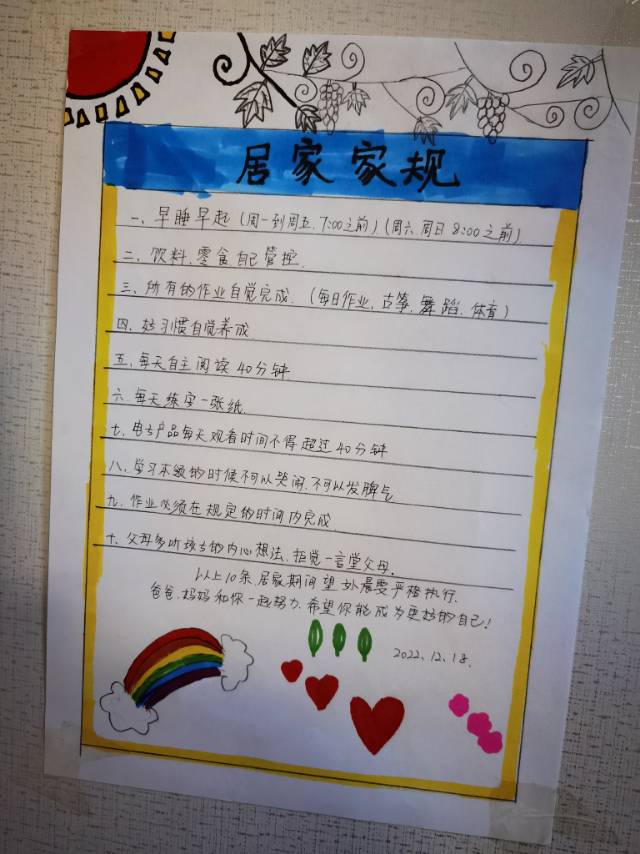 居家家规
一、早睡早起（周一到周五，7:00之前）（周六、周日 8:00之前）
二、饮料、零食自己管控.
三、所有的作业自觉完成.（每日作业、古筝、舞蹈、体育）
四、好习惯自觉养成.
五、每天自主阅读40分钟
六、每天练字一张纸.
七、电子产品每天观看时间不得超过40分钟
八、学习不敏的时候不可以哭闹、不可以发脾气
九、作业必须在规定的时间内完成
十、父母多听孩子的内心想法、拒绝一言堂父母.
以上10条.居家期间望 晨要严格执行.
爸爸、妈妈和你一起努力、希望你能成为更好的自己！
2022、12、18.